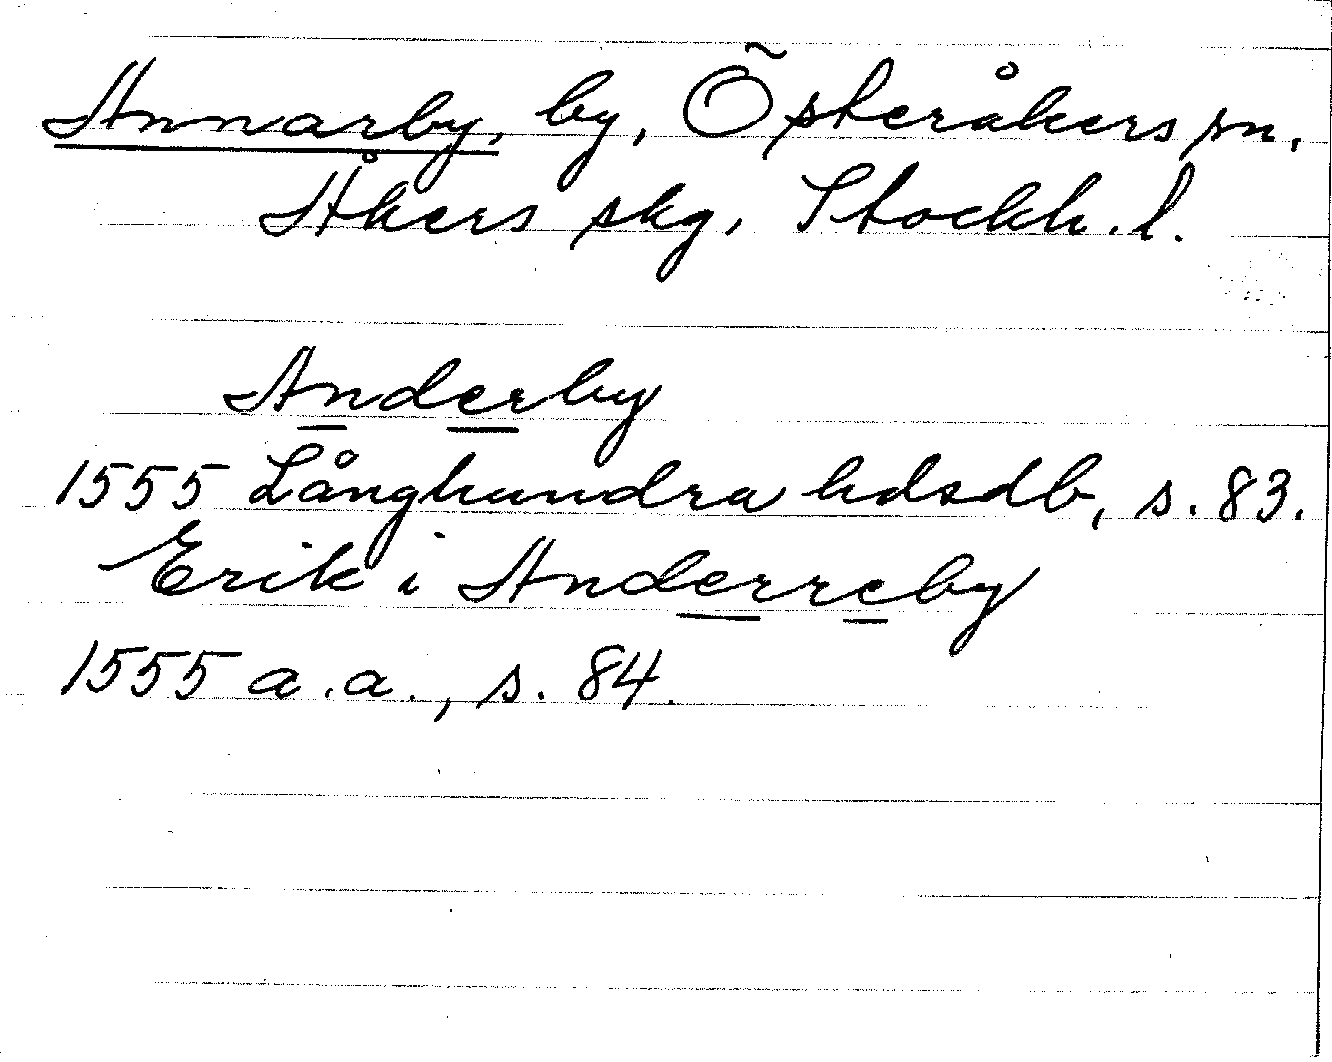 Annarby, by, Österåkers sn.
Åkers skg. Stockh. l.
Anderby
1555 Långhundra hdsdb, s. 83.
Erik i Anderreby
1555 a.a., s. 84.